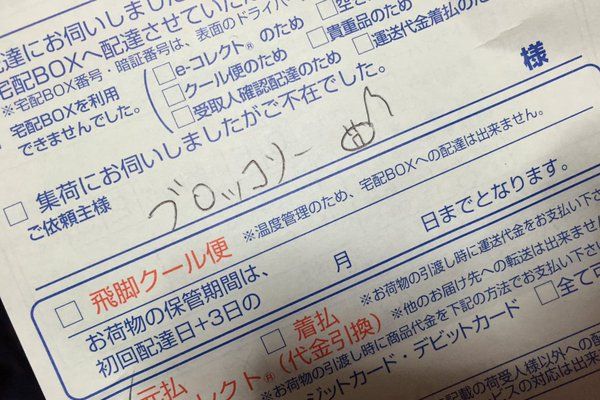 配達にお伺いしました
宅配BOXへ配達させていただ
※宅配BOX番号・暗証番号は、表面のドライバー
宅配BOXを利用
できませんでした。
□e-コレクト®のため
□クール便のため
□受取人確認配達のため
□空き
□貴重品のため
□運送代金着払のため
□集荷にお伺いしましたがご不在でした。
ご依頼主様
ブロッコリー
様
□飛脚クール便
※温度管理のため、宅配BOXへの配達は出来ません。
お荷物の保管期間は、
初回配達日+3日の
月
日までとなります。
□着払
※お荷物の引渡し時に運送代金をお支払い下さ
※他のお届け先への転送は出来ませ
元払
コレクト®(代金引換)
※お荷物の引渡し時に商品代金を下記の方法でお支払い下さい
ジットカード・デビットカード
□全て
記載の荷受人様以外への配
ビスの対応は出来ま